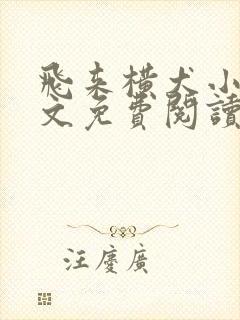 飛來橫犬小
文免費閱讀
汪慶廣